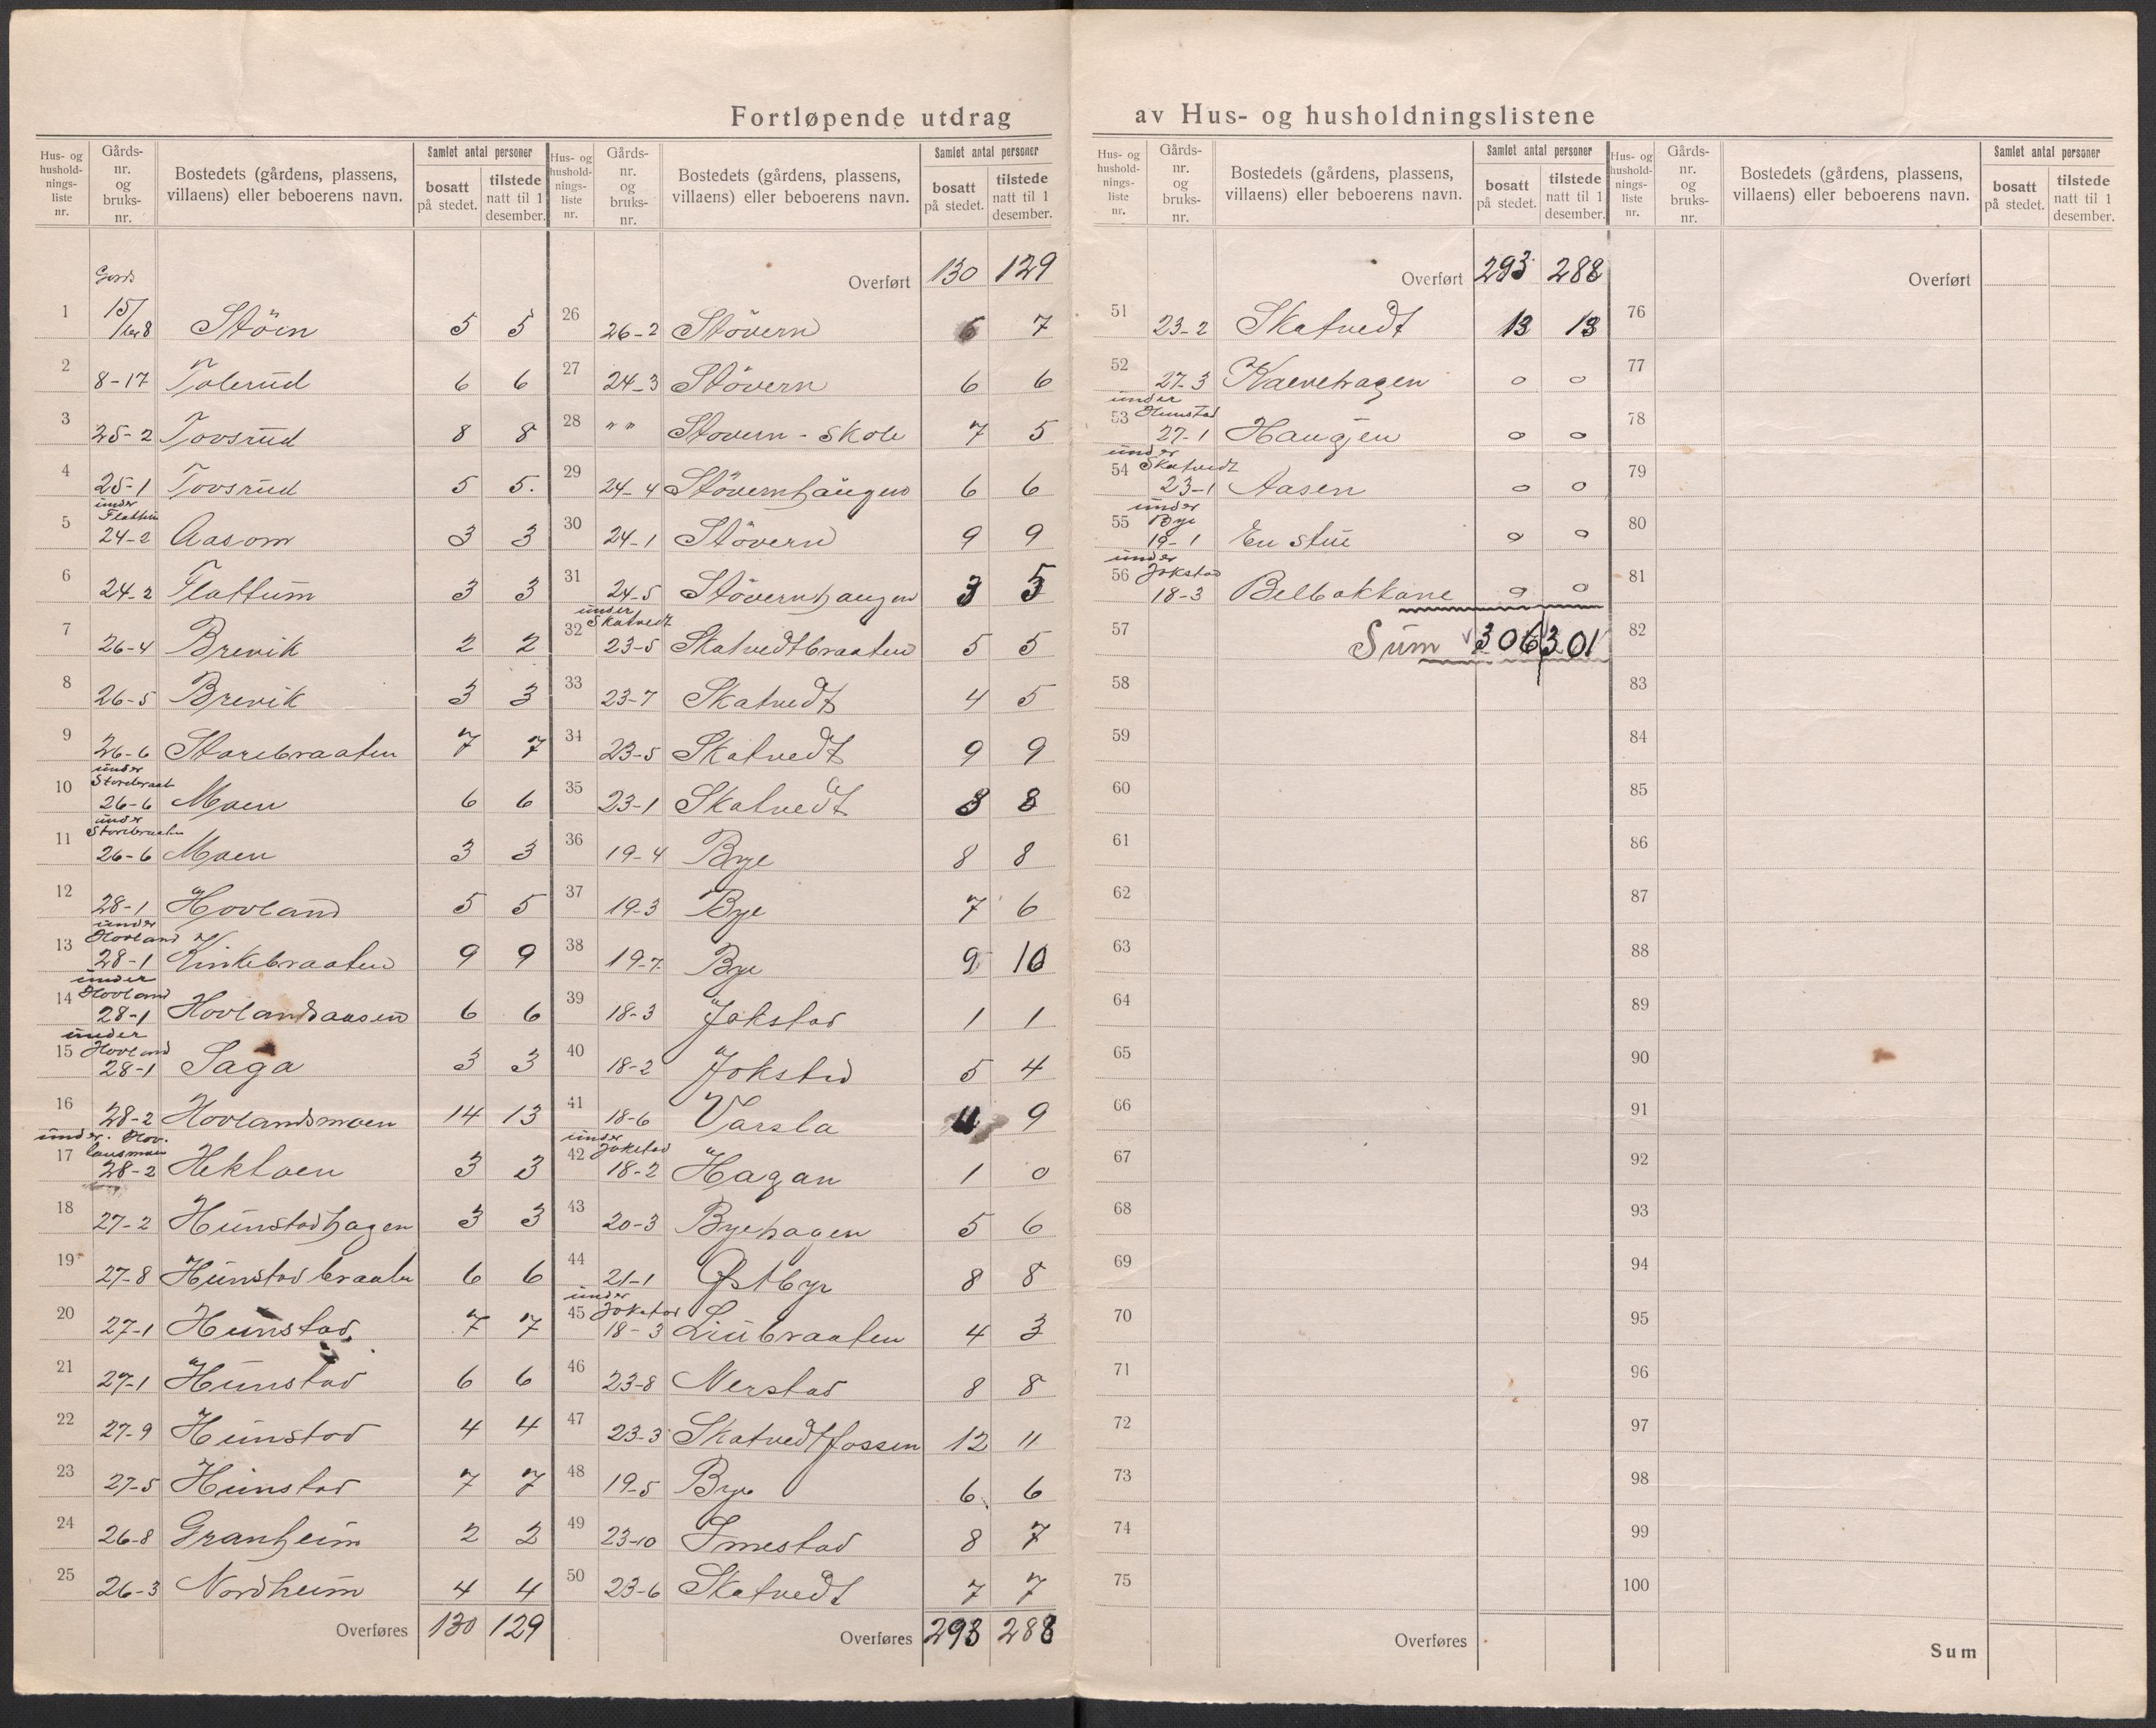 Fortløpende utdrag av Hus- og husholdningslistene
Hus- og hushold-nings-liste nr. Gårds-nr. og bruks-nr. Bostedets (gårdens, plassens, villaens) eller beboerens navn. Samlet antal personer bosatt på stedet. tilstede natt til 1 desember.
Gards
1 15/ 8 Stöin 5 5
2 8-17 Tolerud 6 6
3 25-2 Tovsrud 8 8
4 25-1 Tovsrud 5 5.
under Flattum
5 24-2 Aasom 3 3
6 24-2 Flattum 3 3
7 26-4 Brevik 2 2
8 26-5 Brevik 3 3
9 26-6 Storebraaten 7 7
under Storebraat
10 26-6 Moen 6 6
under Storebraaten
11 26-6 Moen 3 3
12 28-1 Hovland 5 5
under Hovland
13 28-1 Vinkebraaten 9 9
under Hovland
14 28-1 Hovlandsaasen 6 6
under Hovland
15 28-1 Saga 3 3
16 28-2 Hovlandsmoen 14 13
under Hov.
lansmoen
17 28-2 Hekloen 3 3
18 27-2 Hunstadhagen 3 3
19 27-8 Hunstad braaten 6 6
20 27-1 Hunstad 7 7
21 27-1 Hunstad 6 6
22 27-9 Hunstad 4 4
23 27-5 Hunstad 7 7
24 26-8 Granheim 2 2
25 26-3 Nordheim 4 4
Overføres 130 129
Hus- og hushold-nings-liste nr. Gårds-nr. og bruks-nr. Bostedets (gårdens, plassens, villaens) eller beboerens navn. Samlet antal personer bosatt på stedet. tilstede natt til 1 desember.
Overført 130 129
26 26-2 Stövern 6 7
27 24-3 Stövern 6 6
28 " " Stovern - Skole 7 5
29 24-4 Stövernhaugen 6 6
30 24-1 Stövern 9 9
31 24-5 Stövernhaugen 3 5
under Skatvedt
32 23-5 Skatvedtbraaten 5 5
33 23-7 Skatvedt 4 5
34 23-5 Skatvedt 9 9
35 23-1 Skatvedt 8 8
36 19-4 Bye 8 8
37 19-3 Bye 7 6
38 19-7 Bye 9 10
39 18-3 Jokstad 1 1
40 18-2 Jokstad 5 4
41 18-6 Varsla 9
under Jokstad
42 18-2 Hagan 1 0
43 20-3 Byehagen 5 6
44 21-1 Østbye 8 8
under Jokstad
45 18-3 Liubraaten 4 3
46 23-8 Nerstad 8 8
47 23-3 Skatvedtfossen 12 11
48 19-5 Bye 6 6
49 23-10 Imestad 8 7
50 23-6 Skatvedt 7 7
Overføres 293 288
Hus- og hushold-nings-liste nr. Gårds-nr. og bruks-nr. Bostedets (gårdens, plassens, villaens) eller beboerens navn. Samlet antal personer bosatt på stedet. tilstede natt til 1 desember.
Overført 293 288
51 23-2 Skatvedt 13 13
52 27-3 Kalvehagen 0 0
under Hunstad
53 27-1 Haugen 0 0
under Skatvedt
54 23-1 Aasen 0 0
under Bye
55 19-1 En stue 0 0
under Jokstad
56 18-3 Belbakkane 0 0
57 Sum 306 301
58
59
60
61
62
63
64
65
66
67
68
69
70
71
72
73
74
75
Overføres
Hus- og hushold-nings-liste nr. Gårds-nr. og bruks-nr. Bostedets (gårdens, plassens, villaens) eller beboerens navn. Samlet antal personer bosatt på stedet. tilstede natt til 1 desember.
Overført
76
77
78
79
80
81
82
83
84
85
86
87
88
89
90
91
92
93
94
95
96
97
98
99
100
Sum